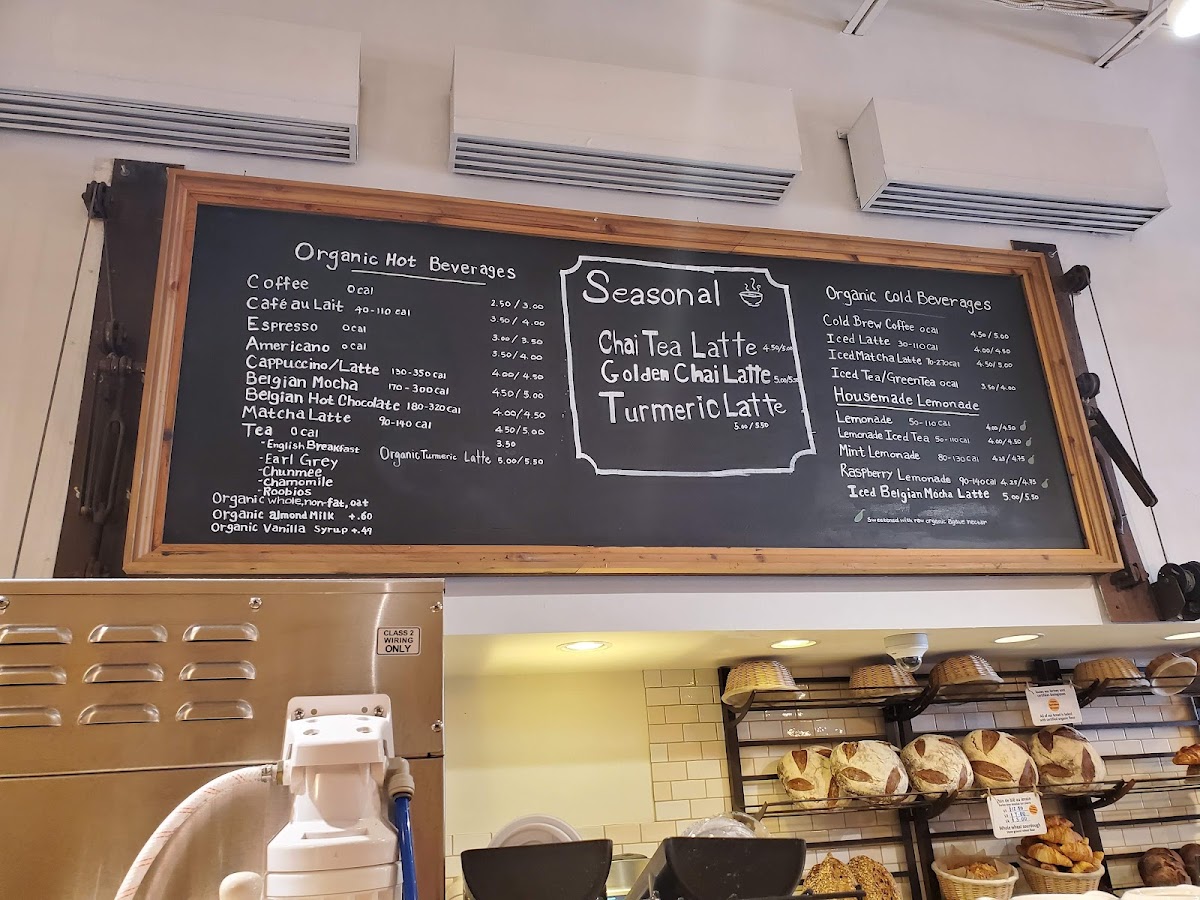 Organic Hot Beverages
Coffee 0cal 2.50 / 3.00
Café au Lait 40-110 cal 3.50 / 4.00
Espresso 0cal 3.00 / 3.50
Americano 0cal 3.50 / 4.00
Cappuccino/Latte 130-350cal 4.00 / 4.50
Belgian Mocha 170-300cal 4.50 / 5.00
Belgian Hot Chocolate 180-320cal 4.00/4.50
Matcha Latte 90-140 cal 4.50/5.00
Tea 0cal 3.50
-English Breakfast
-Earl Grey
-Chunmee
-Chamomile
-Roobios
Organic Turmeric Latte 5.00/5.50
Organic whole, non-fat, oat
Organic almond Milk +.60
Organic Vanilla Syrup +.49
Seasonal
Chai Tea Latte 4.50/5.00
Golden Chai Latte 5.00/5.50
Turmeric Latte
5.00/5.50
Organic Cold Beverages
Cold Brew Coffee 0cal 4.50/5.00
Iced Latte 30-110cal 4.00/4.50
Iced Matcha Latte 70-270cal 4.50/5.00
Iced Tea/Green Tea 0cal 3.50/4.00
Housemade Lemonade
Lemonade 50-110cal 4.00/4.50
Lemonade Iced Tea 50-110cal 4.00/4.50
Mint Lemonade 80-130cal 4.25/4.75
Raspberry Lemonade 90-140cal 4.25/4.75
Iced Belgian Mocha Latte 5.00/5.50
Sweetened with raw organic agave nectar
CLASS 2
WIRING
ONLY